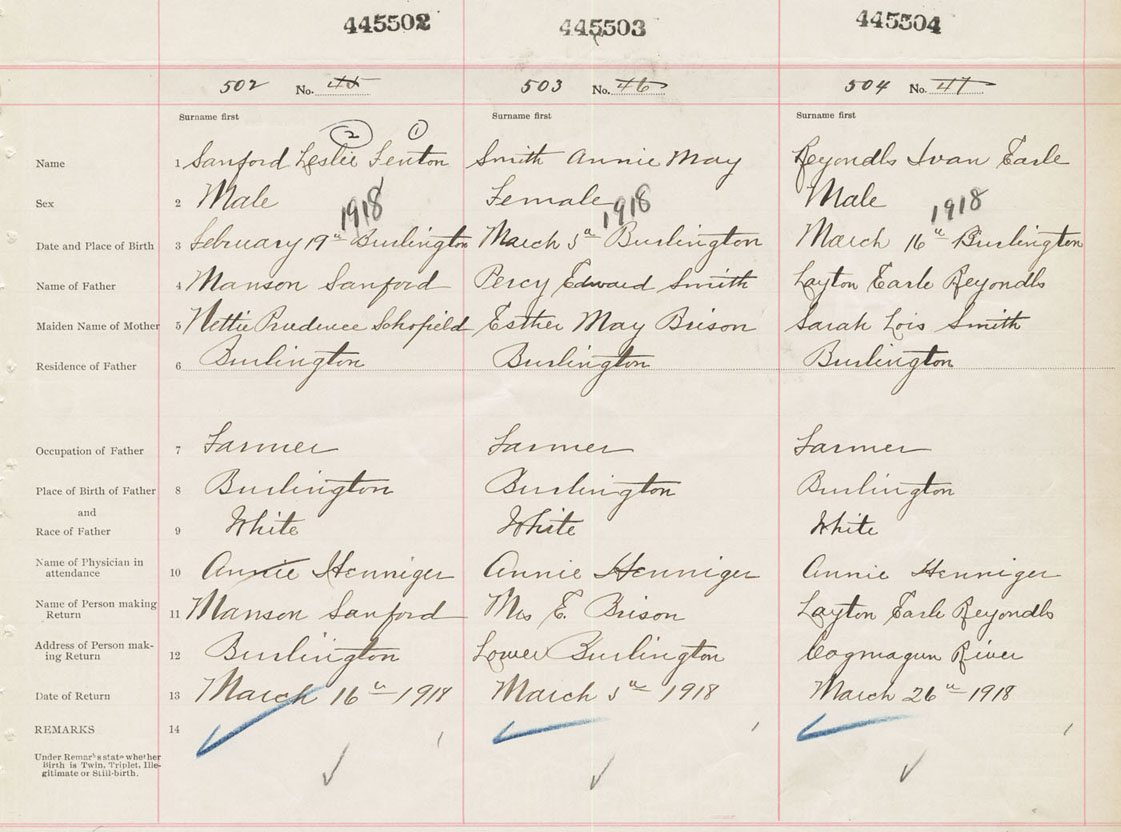 445502 445503 445504
502 No. 45 503 No. 46 504 No. 47
Surname first Surname first Surname first
2 1
Name 1 Sanford Leslie Fenton Smith Annie May Reyondls Ivan Earle
Sex 2 Male Female Male
1918 1918 1918
Date and Place of Birth 3 February 19th Burlington March 5th Burlington March 16th Burlington
Name of Father 4 Manson Sanford Percy Edward Smith Layton Earle Reyondls
Maiden Name of Mother 5 Nettie Prudence Schofield Esther May Brison Sarah Lois Smith
Residence of Father 6 Burlington Burlington Burlington
Occupation of Father 7 Farmer Farmer Farmer
Place of Birth of Father 8 Burlington Burlington Burlington
and
Race of Father 9 White White White
Name of Physician in
attendance 10 Annie Henniger Annie Henniger Annie Henniger
Name of Person making
Return 11 Manson Sanford Mrs E. Brison Layton Earle Reyondls
Address of Person mak-
ing Return 12 Burlington Lower Burlington Cogmagun River
Date of Return 13 March 16th 1918 March 5th 1918 March 26th 1918
REMARKS 14
Under Remarks state whether
Birth is Twin, Triplet, Ille-
gitimate or Still-birth.